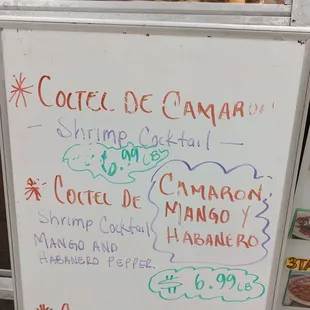 COCTEL DE CAMARON
— Shrimp Cocktail —
$6.99 LB
COCTEL DE
CAMARON,
MANGO Y
HABANERO
Shrimp Cocktail
MANGO AND
HABANERO PEPPER.
$ 6.99 LB